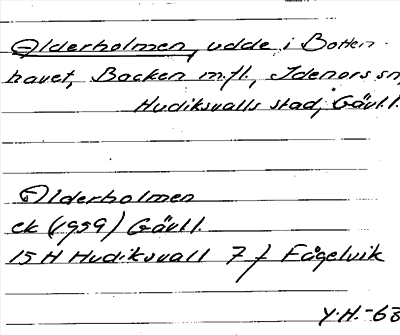 Alderholmen, udde i Botten-
havet, Backen m.fl., Idenors sn,
Hudiksvalls stad, Gävl.l.
Alderholmen
ek (1959) Gävl.l.
15 H Hudiksvall 7 f Fågelvik
Y.H.-63